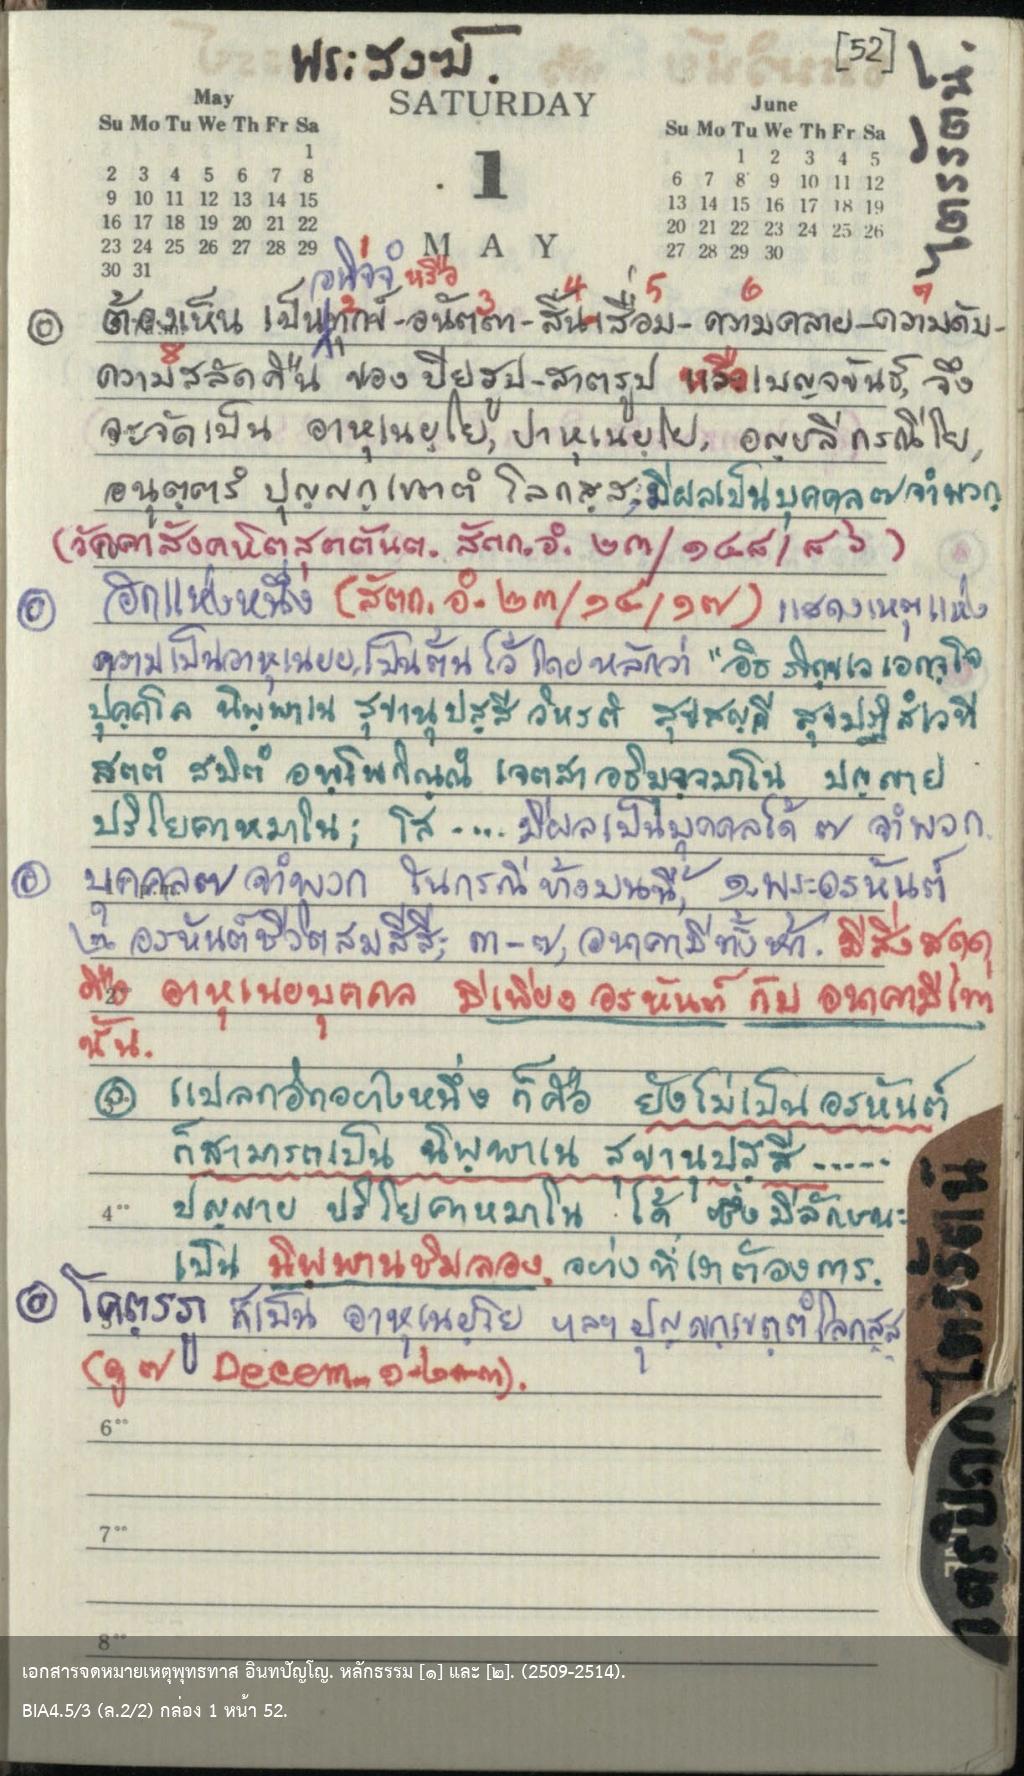 พระสงฆ์.
[52]
ไตรรัตน์
May
Su Mo Tu We Th Fr Sa
1
2 3 4 5 6 7 8
9 10 11 12 13 14 15
16 17 18 19 20 21 22
23 24 25 26 27 28 29
30 31
SATURDAY
1
MAY
June
Su Mo Tu We Th Fr Sa
1 2 3 4 5
6 7 8 9 10 11 12
13 14 15 16 17 18 19
20 21 22 23 24 25 26
27 28 29 30
อนิจจํ หรือ
ต้องเห็น เป็นทุกข์-อนัตตา-สิ้นเสื่อม-ความคลาย-ความดับ-
ความสลัดคืน ของ ปิยรูป-สาตรูป หรือเบญจขันธ์, จึง
จะจัดเป็น อาหุเนยฺโย, ปาหุเนยฺโย, อญฺชลีกรณีโย,
อนุตฺตรํ ปุญฺญกฺเขตฺตํ โลกสฺส; มีผลเป็นบุคคล ๗ จำพวก
สุตตันต. สัตก.อํ. ๒๓/๑๔๘/๘๖)
อีกแห่งหนึ่ง (สัตก. อํ. ๒๓/๑๔/๑๗) แสดงเหตุแห่ง
ความเป็นอาหุเนยย, เป็นต้น ไว้โดยหลักว่า "อิธ ภิกฺขเว เอกจฺโจ
ปุคฺคโล นิพฺพาเน สุขานุปสฺสี วิหรติ สุขสญฺญี สุขปฏิสํเวที
สตตํ สมิตํ อพฺโพกิณฺณํ เจตสา อธิมุจฺจมาโน ปญฺญาย
ปริโยคาหมาโน; โส .... มีผลเป็นบุคคลได้ ๗ จำพวก.
บุคคล ๗ จำพวก ในกรณีข้างบนนี้, ๑. พระอรหันต์
๒. อรหันต์ชีวิตสมสีสี; ๓-๗, อนาคามีทั้งห้า. มีสิ่งสดุดุ
คือ อาหุเนยบุคคล มีเพียง อรหันต์ กับ อนาคามีเท่า
นั้น.
แปลกอีกอย่างหนึ่ง ก็คือ ยังไม่เป็น อรหันต์
ก็สามารถเป็น นิพฺพาเน สุขานุปสฺสี ......
ปญฺญาย ปริโยคาหมาโน ได้ ซึ่งมีลักษณะ
เป็น นิพพานชิมลอง, อย่างที่เราต้องการ.
โคตฺรภู ก็เป็น อาหุเนยฺโย ฯลฯ ปุญฺญกฺเขตฺตํ โลกสฺส
(ดู ๗ Decem. ๑-๒-๓).
2
4⁰⁰
6⁰⁰
7⁰⁰
8⁰⁰
ไตรรัตน์
ไตรปิฎก
เอกสารจดหมายเหตุพุทธทาส อินทปัญโญ. หลักธรรม [๑] และ [๒]. (2509-2514).
BIA4.5/3 (ล.2/2) กล่อง 1 หน้า 52.